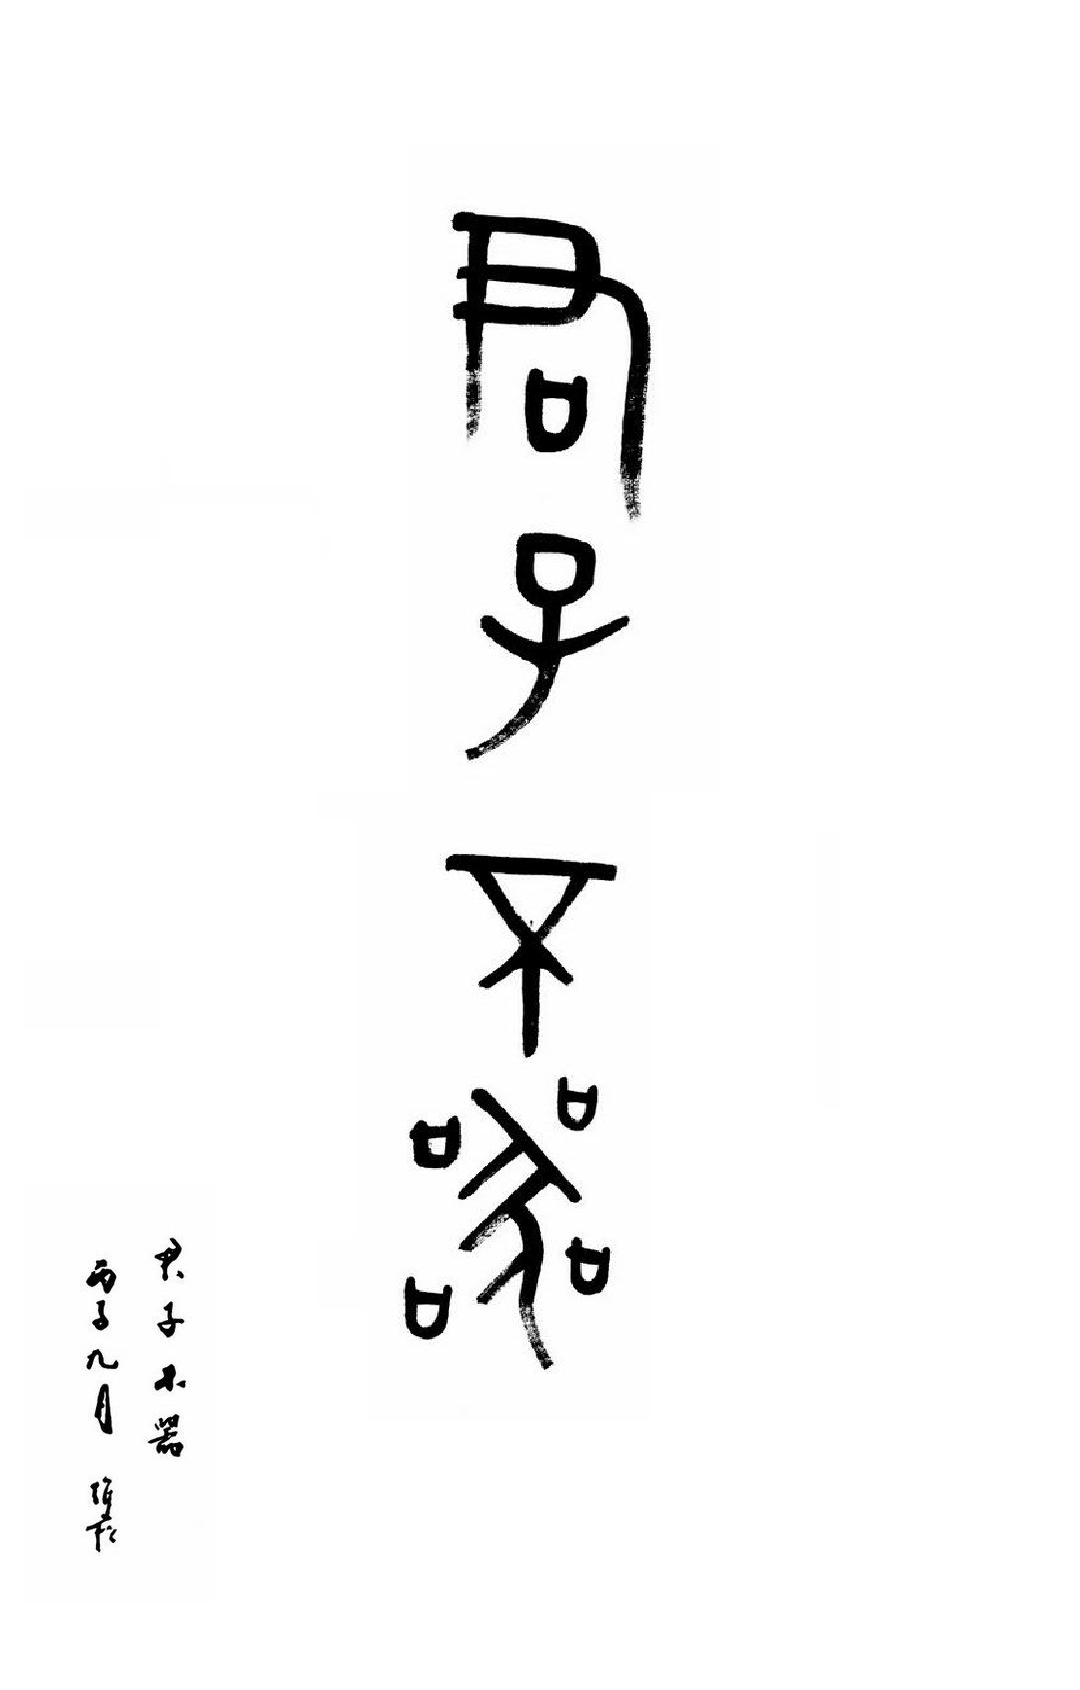 君子不器
君子不器
丙子九月